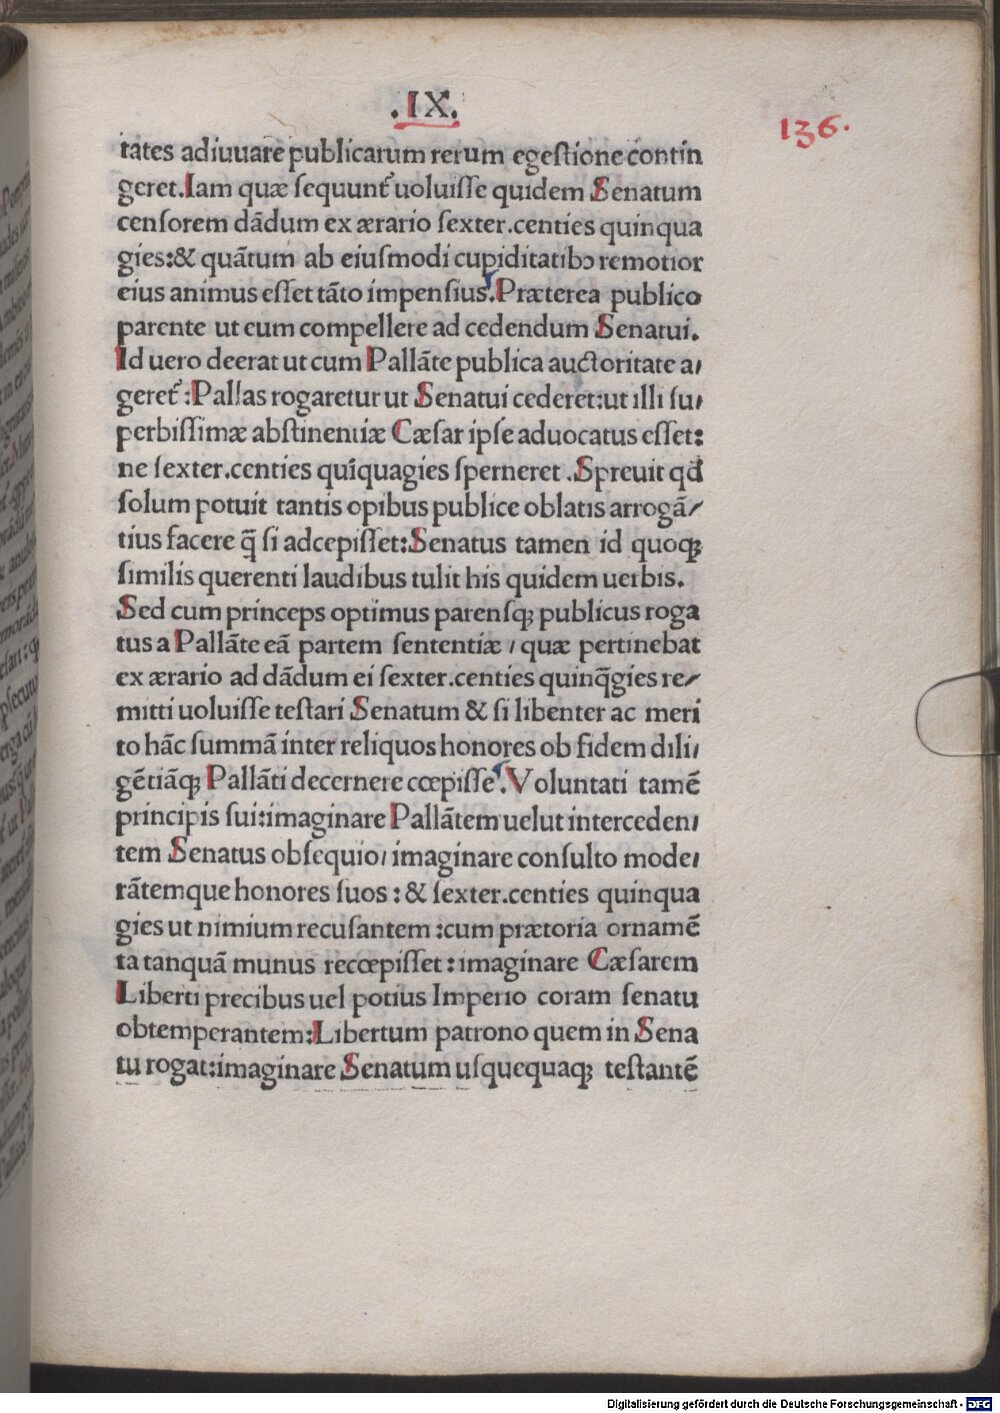 .IX.
136.
tates adiuuare publicarum rerum egeſtione contin
geret.Iam quæ ſequunt᷑ uoluiſſe quidem Senatum
cenſorem dãdum ex ærario ſexter.centies quinqua
gies:& quãtum ab eiuſmodi cupiditatibꝫ remotior
eius animus eſſet tãto impenſius.Præterea publico
parente ut eum compellere ad cedendum Senatui.
Id uero deerat ut cum Pallãte publica auctoritate a/
geret᷑:Pallas rogaretur ut Senatui cederet:ut illi ſu/
perbiſſimæ abſtinentiæ Cæſar ipſe aduocatus eſſet:
ne ſexter.centies quĩquagies ſperneret.Spreuit qđ
ſolum potuit tantis opibus publice oblatis arrogã/
tius facere q̃ ſi adcepiſſet:Senatus tamen id quoqꝫ
ſimilis querenti laudibus tulit his quidem uerbis.
Sed cum princeps optimus parenſqꝫ publicus roga
tus a Pallãte eã partem ſententiæ / quæ pertinebat
ex ærario ad dãdum ei ſexter.centies quinq̃gies re/
mitti uoluiſſe teſtari Senatum & ſi libenter ac meri
to hãc ſummã inter reliquos honores ob fidem dili/
gẽtiãqꝫ Pallãti decernere cœpiſſe.Voluntati tamẽ
principis ſui:imaginare Pallãtem uelut interceden/
tem Senatus obſequio/ imaginare conſulto mode/
rãtemque honores ſuos:& ſexter.centies quinqua
gies ut nimium recuſantem:cum prætoria ornamẽ
ta tanquã munus recœpiſſet:imaginare Cæſarem
Liberti precibus uel potius Imperio coram ſenatu
obtemperantem:Libertum patrono quem in Sena
tu rogat:imaginare Senatum uſquequaqꝫ teſtantẽ
Digitalisierung gefördert durch die Deutsche Forschungsgemeinschaft - DFG